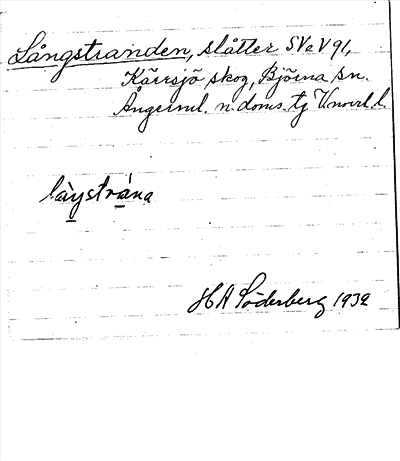 Långstranden, slåtter SVaV91,
Kärrsjö skog, Björna sn.
Ångerml. n. doms. tg V.norrl. l.
làŋstrána
HA Söderberg 1932